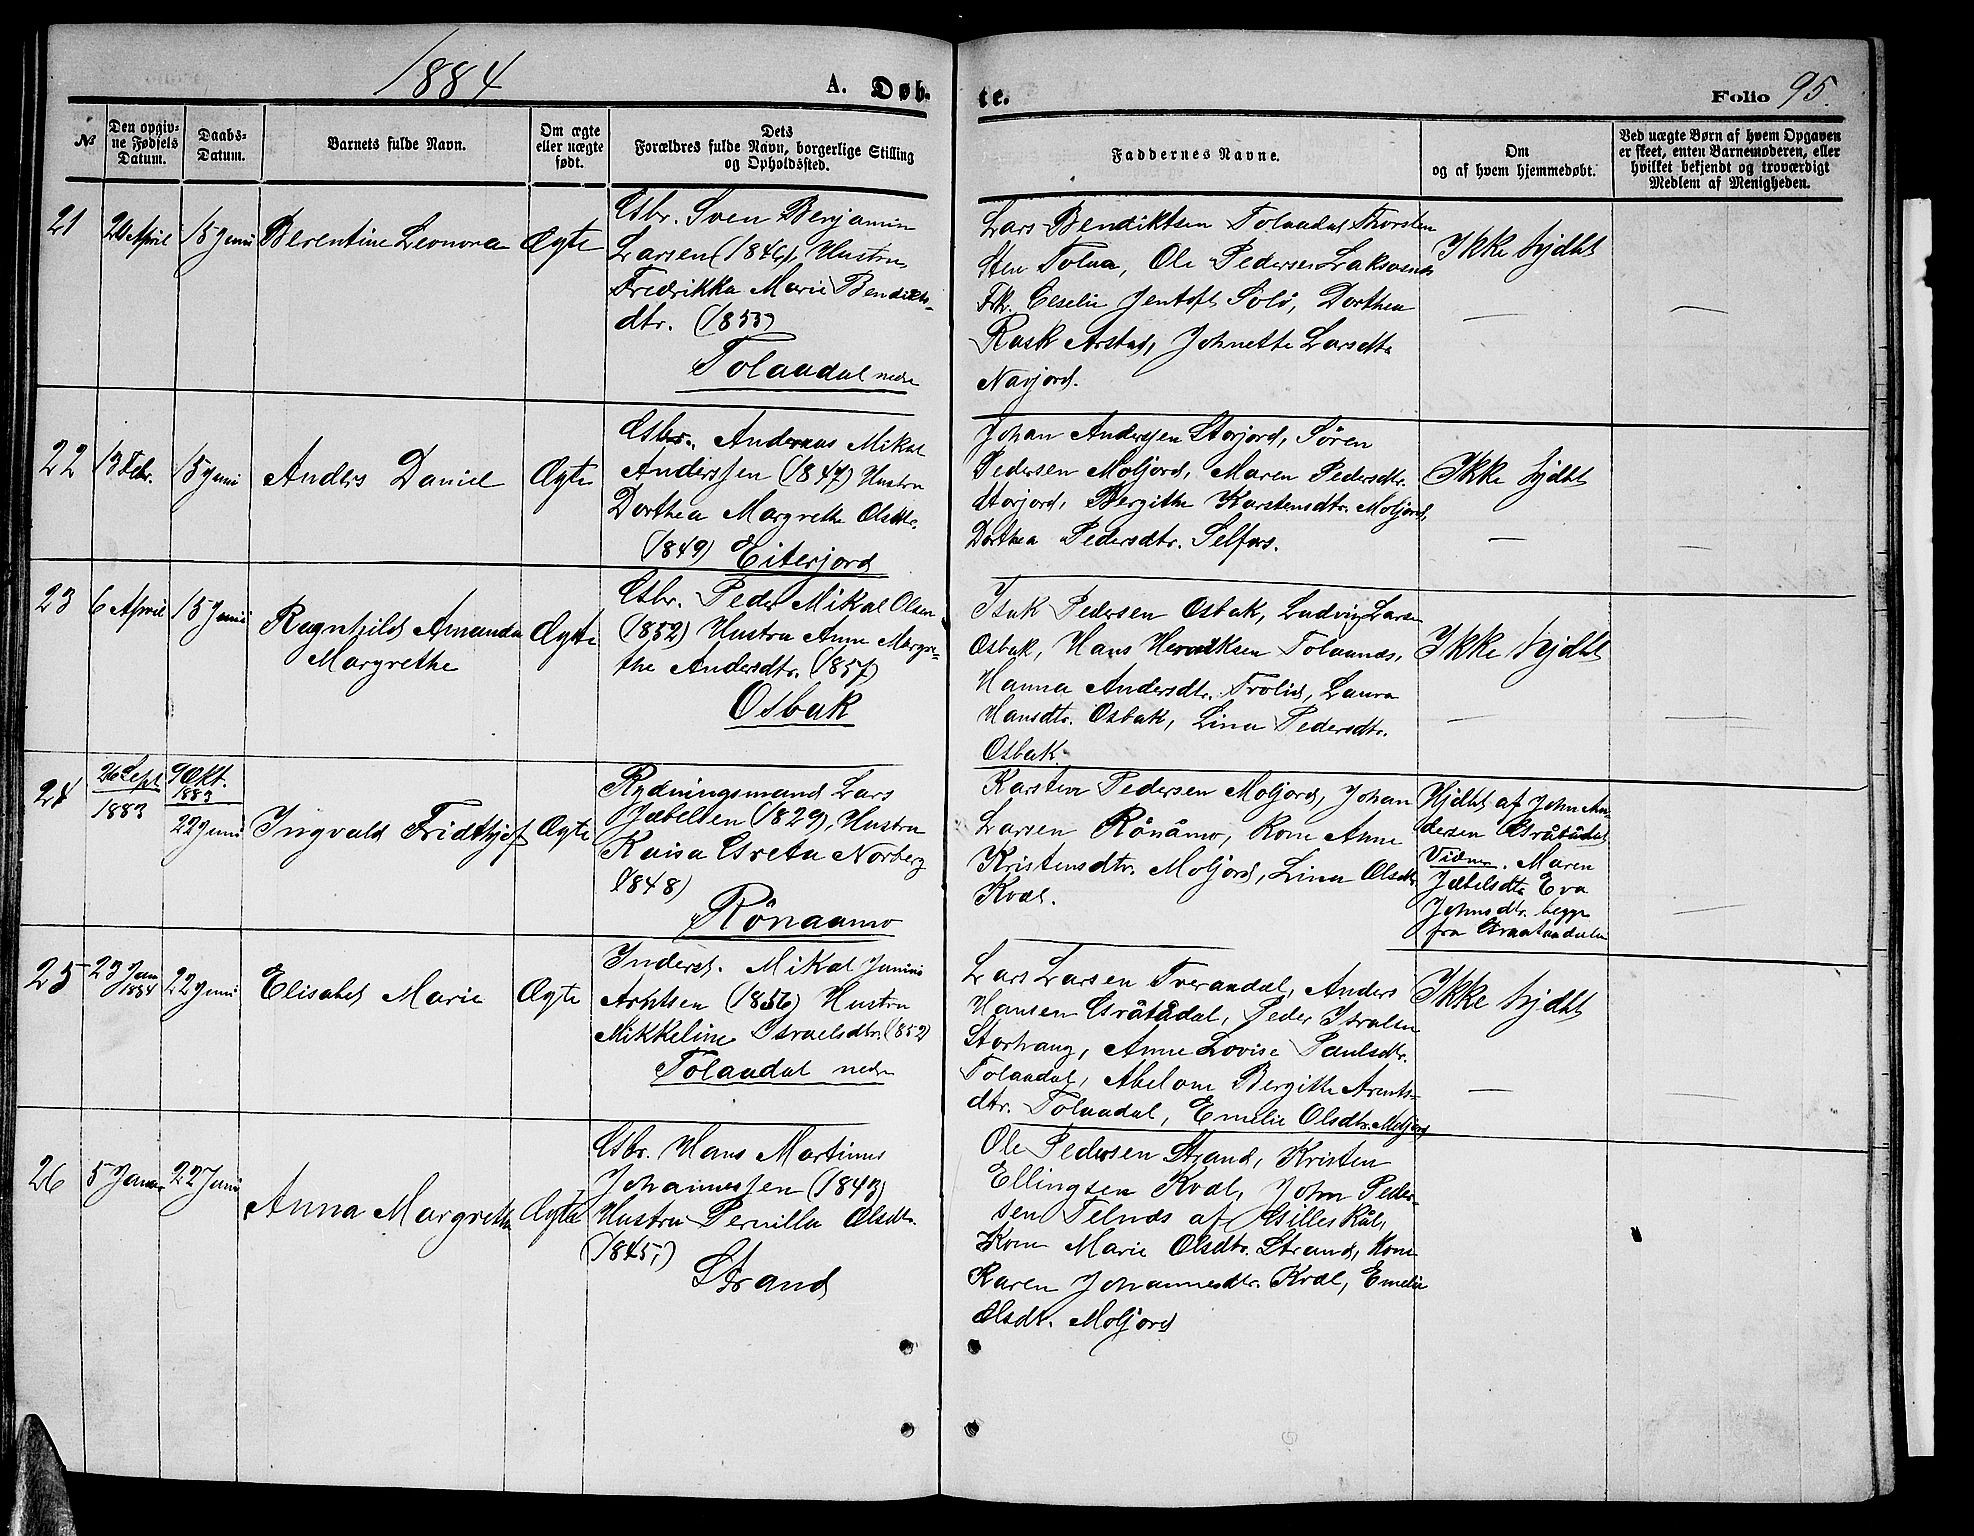 1884
A. Døb-
te.
Folio 95.
№
Den opgiv-
ne Fødsels
Datum.
Daabs-
Datum.
Barnets fulde Navn.
Om ægte
eller uægte
født.
Dets
Forældres fulde Navn, borgerlige Stilling
og Opholdssted.
Faddernes Navne.
Om
og af hvem hjemmedøbt.
Ved uægte Børn af hvem Opgaven
er skeet, enten Barnemoderen, eller
hvilket bekjendt og troværdigt
Medlem af Menigheden.
21
April
15 Juni
Berentine Leonora
Ægte
Gbr. Sven Benjamin
Larsen (1846), Hustru
Fredrikka Marie Bendikts-
dtr. (1853)
Tolaadal nedre
Lars Bendiktsen Tolaadal, Thorsten
Sten Tolaa, Ole Pedersen
Frk. Ceselie Jentoft Solö, Dorthea
Rask Arstad, Johnette Larsdtr
Navjord.
Ikke hjdbt
22
13 Febr.
15 Juni
Anders Daniel
Ægte
Gbr. Andreas Mikal
Anderssen (1847) Hustru
Dorthea Margrethe Olsdtr.
(1849) Eiterjord
Johan Anderssen Storjord, Sören
Pedersen Moljord, Maren Pedersdtr.
Storjord, Bergithe Karstensdtr. Moljord,
Dorthea Pedersdtr. Selfors.
Ikke hjdbt
23
6 April
15 Juni
Ragnhild Amanda
Margrethe
Ægte
Gbr. Peder Mikal Olsen
(1852) Hustru Anne Margre-
the Andersdtr. (1857)
Osbak
Isak Pedersen Osbak, Ludvig Larsen
Osbak, Hans Henriksen Tolaanæs,
Hanna Andersdtr. Trolid, Laura
Hansdtr. Osbak, Lina Pedersdtr.
Osbak.
Ikke hjdbt
24
26 Sept.
1883
9 Okt.
1883
22 Juni
Ingvald Fridthjof
Ægte
Rydningsmand Lars
Jæbelsen (1829), Hustru
Kaisa Greta Norberg
(1848)
Rönaamo
Karsten Pedersen Moljord, Johan
Larsen Rönåmo, Kone Anne
Kristensdtr. Moljord, Lina Olsdtr
Kval.
Hjdbt af John An-
dersen Gråtådal
Vidner. Maren
Jæbelsdtr Eva
Johnsdtr. begge
fra Graataadalen
25
23 Jan
1884
22 Juni
Elisabet Marie
Ægte
Inderst. Mikal Junius
Arntsen (1856) Hustru
Mikkeline Israelsdtr. (1852)
Tolaadal nedre
Lars Larsen Tverandal, Anders
Hansen Gråtådal, Peder Isralsen
Storhaug, Anne Lovise Paulsdtr.
Tolaadal, Abelone Bergitte Arnts-
dtr. Tolaadal, Emelie Olsdtr. Moljord
Ikke hjdbt
26
5 Januar
22 Juni
Anna Margrethe
Ægte
Gbr. Hans Martinus
Johannessen (1843)
Hustru Pernilla Olsdtr.
(1845)
Strand
Ole Pedersen Strand, Kristen
Ellingsen Kval, John Peder-
sen Telnæs af Gilleskål,
Kone Marie Olsdtr. Strand, Kone
Karen Johannesdtr. Kval, Emelie
Olsdtr. Moljord